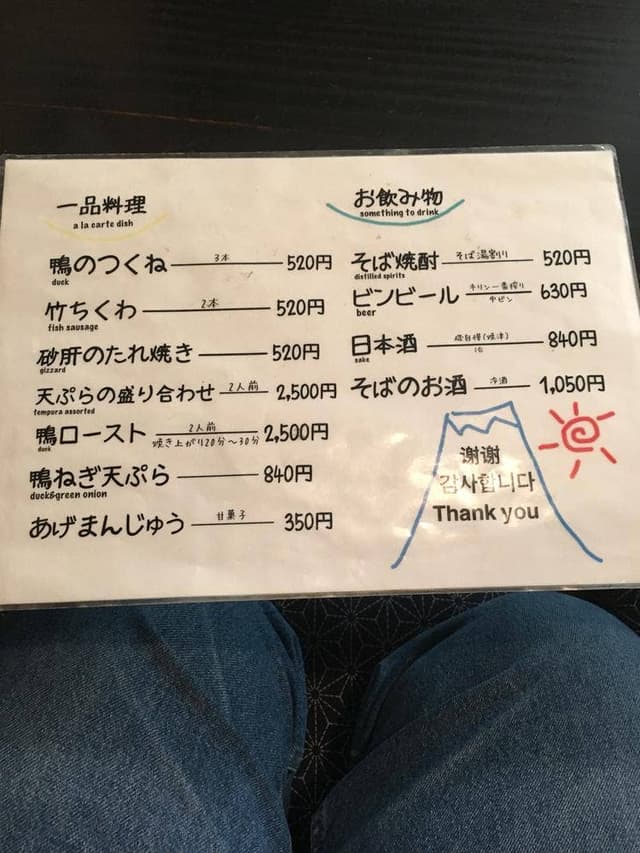 一品料理
a la carte dish
鴨のつくね 3本 520円
duck
竹ちくわ 2本 520円
fish sausage
砂肝のたれ焼き 520円
gizzard
天ぷらの盛り合わせ 2人前 2,500円
tempura assorted
鴨ロースト 2人前 焼き上がり20分〜30分 2,500円
duck
鴨ねぎ天ぷら 840円
duck&green onion
あげまんじゅう 甘菓子 350円
お飲み物
something to drink
そば焼酎 そば湯割り 520円
distilled spirits
ビンビール キリン一番搾り 中ビン 630円
beer
日本酒 磯自慢(焼津) 840円
sake
そばのお酒 冷酒 1,050円
谢谢
감사합니다
Thank you